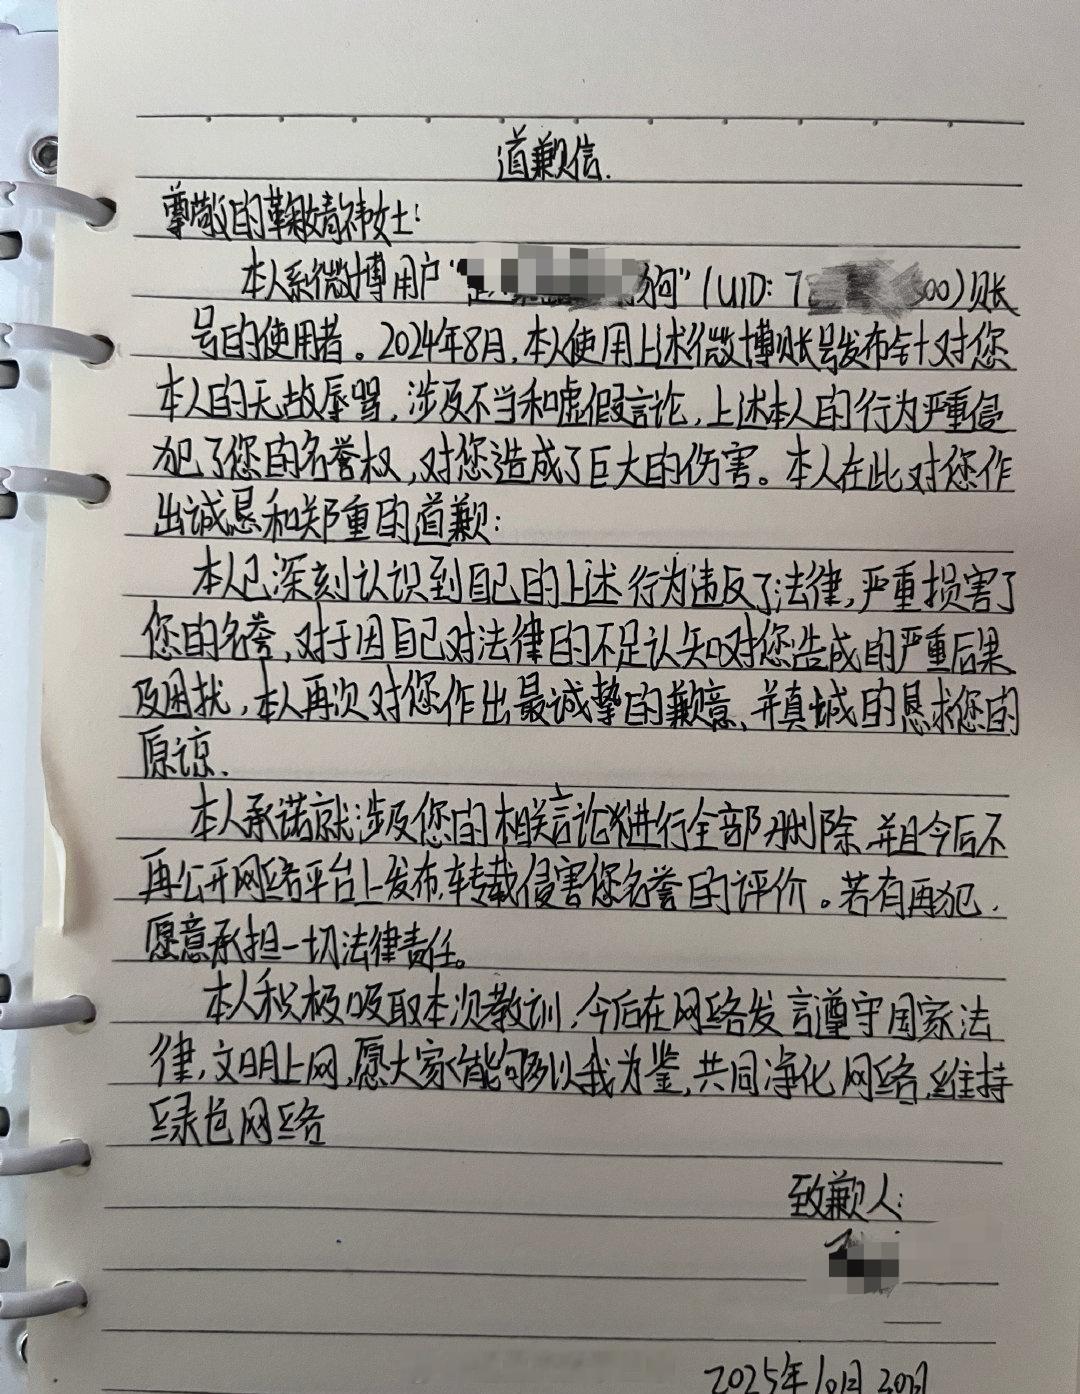 道歉信.
尊敬的鞠婧祎女士:
本人系微博用户“狗”(UID:7 300)账
号的使用者。2024年8月,本人使用上述微博账号发布针对您
本人的无故辱骂,涉及不当和虚假言论,上述本人的行为严重侵
犯了您的名誉权,对您造成了巨大的伤害。本人在此对您作
出诚恳和郑重的道歉:
本人已深刻认识到自己的上述行为违反了法律,严重损害了
您的名誉,对于因自己对法律的不足认知对您造成的严重后果
及困扰,本人再次对您作出最诚挚的歉意、并真诚的恳求您的
原谅.
本人承诺就涉及您的相关言论进行全部删除,并且今后不
再公开网络平台上发布,转载侵害您名誉的评价。若有再犯.
愿意承担一切法律责任。
本人积极吸取本次教训,今后在网络发言遵守国家法
律,文明上网,愿大家能够以我为鉴,共同净化网络,维持
绿色网络
致歉人:
2025年10月20日